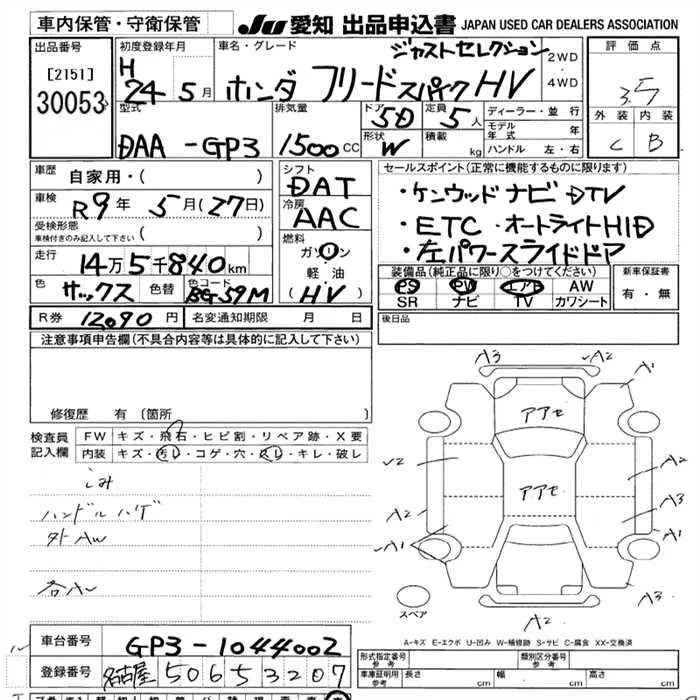 車内保管・守衛保管
JU 愛知 出品申込書 JAPAN USED CAR DEALERS ASSOCIATION
出品番号
[2151]
30053
初度登録年月
H
24 5月
車名・グレード
ジャストセレクション
ホンダ フリードスパイク HV
2WD
・
4WD
評価点
3.5
外装 内装
C B
型式
DAA - GP3
排気量
1500CC
ドア
5D
定員
5人
形状
W
積載
kg
ディーラー・並行
モデル年式 年
ハンドル 左・右
車歴
自家用・( )
車検
R9年 5月(27日)
受検形態
車検付きのみ記入して下さい ( )
走行
14万5千840km
シフト
DAT
冷房
AAC
燃料
ガソリン
・
軽油
(HV)
セールスポイント(正常に機能するものに限ります)
・ケンウッド ナビ DTV
・ETC ・オートライト HID
・左パワースライドドア
色
サックス
色替
色コード
BG-59M
装備品(純正品に限り○をつけてください)
PS PW エアB AW
SR ナビ TV カワシート
新車保証書
有・無
R券 12090円
名変通知期限 月 日
後日品
注意事項申告欄(不具合内容等は具体的に記入して下さい)
修復歴 有(箇所 )
検査員
記入欄
FW キズ・飛石・ヒビ割・リペア跡・X要
内装 キズ・汚レ・コゲ・穴・スレ・キレ・破レ
ごみ
ハンドルハゲ
外AW
A3 A2
A1
アアセ
アアセ
A2
A2
A3
A1
A3
A2
スペア
A-キズ E-エクボ U-凹み W-補修跡 S-サビ C-腐食 XX-交換済
車台番号
GP3-1044002
登録番号
名古屋 506 5 3207
形式指定番号
参考
類別区分番号
参考
車庫証明用
参考
長さ cm
幅 cm
高さ cm